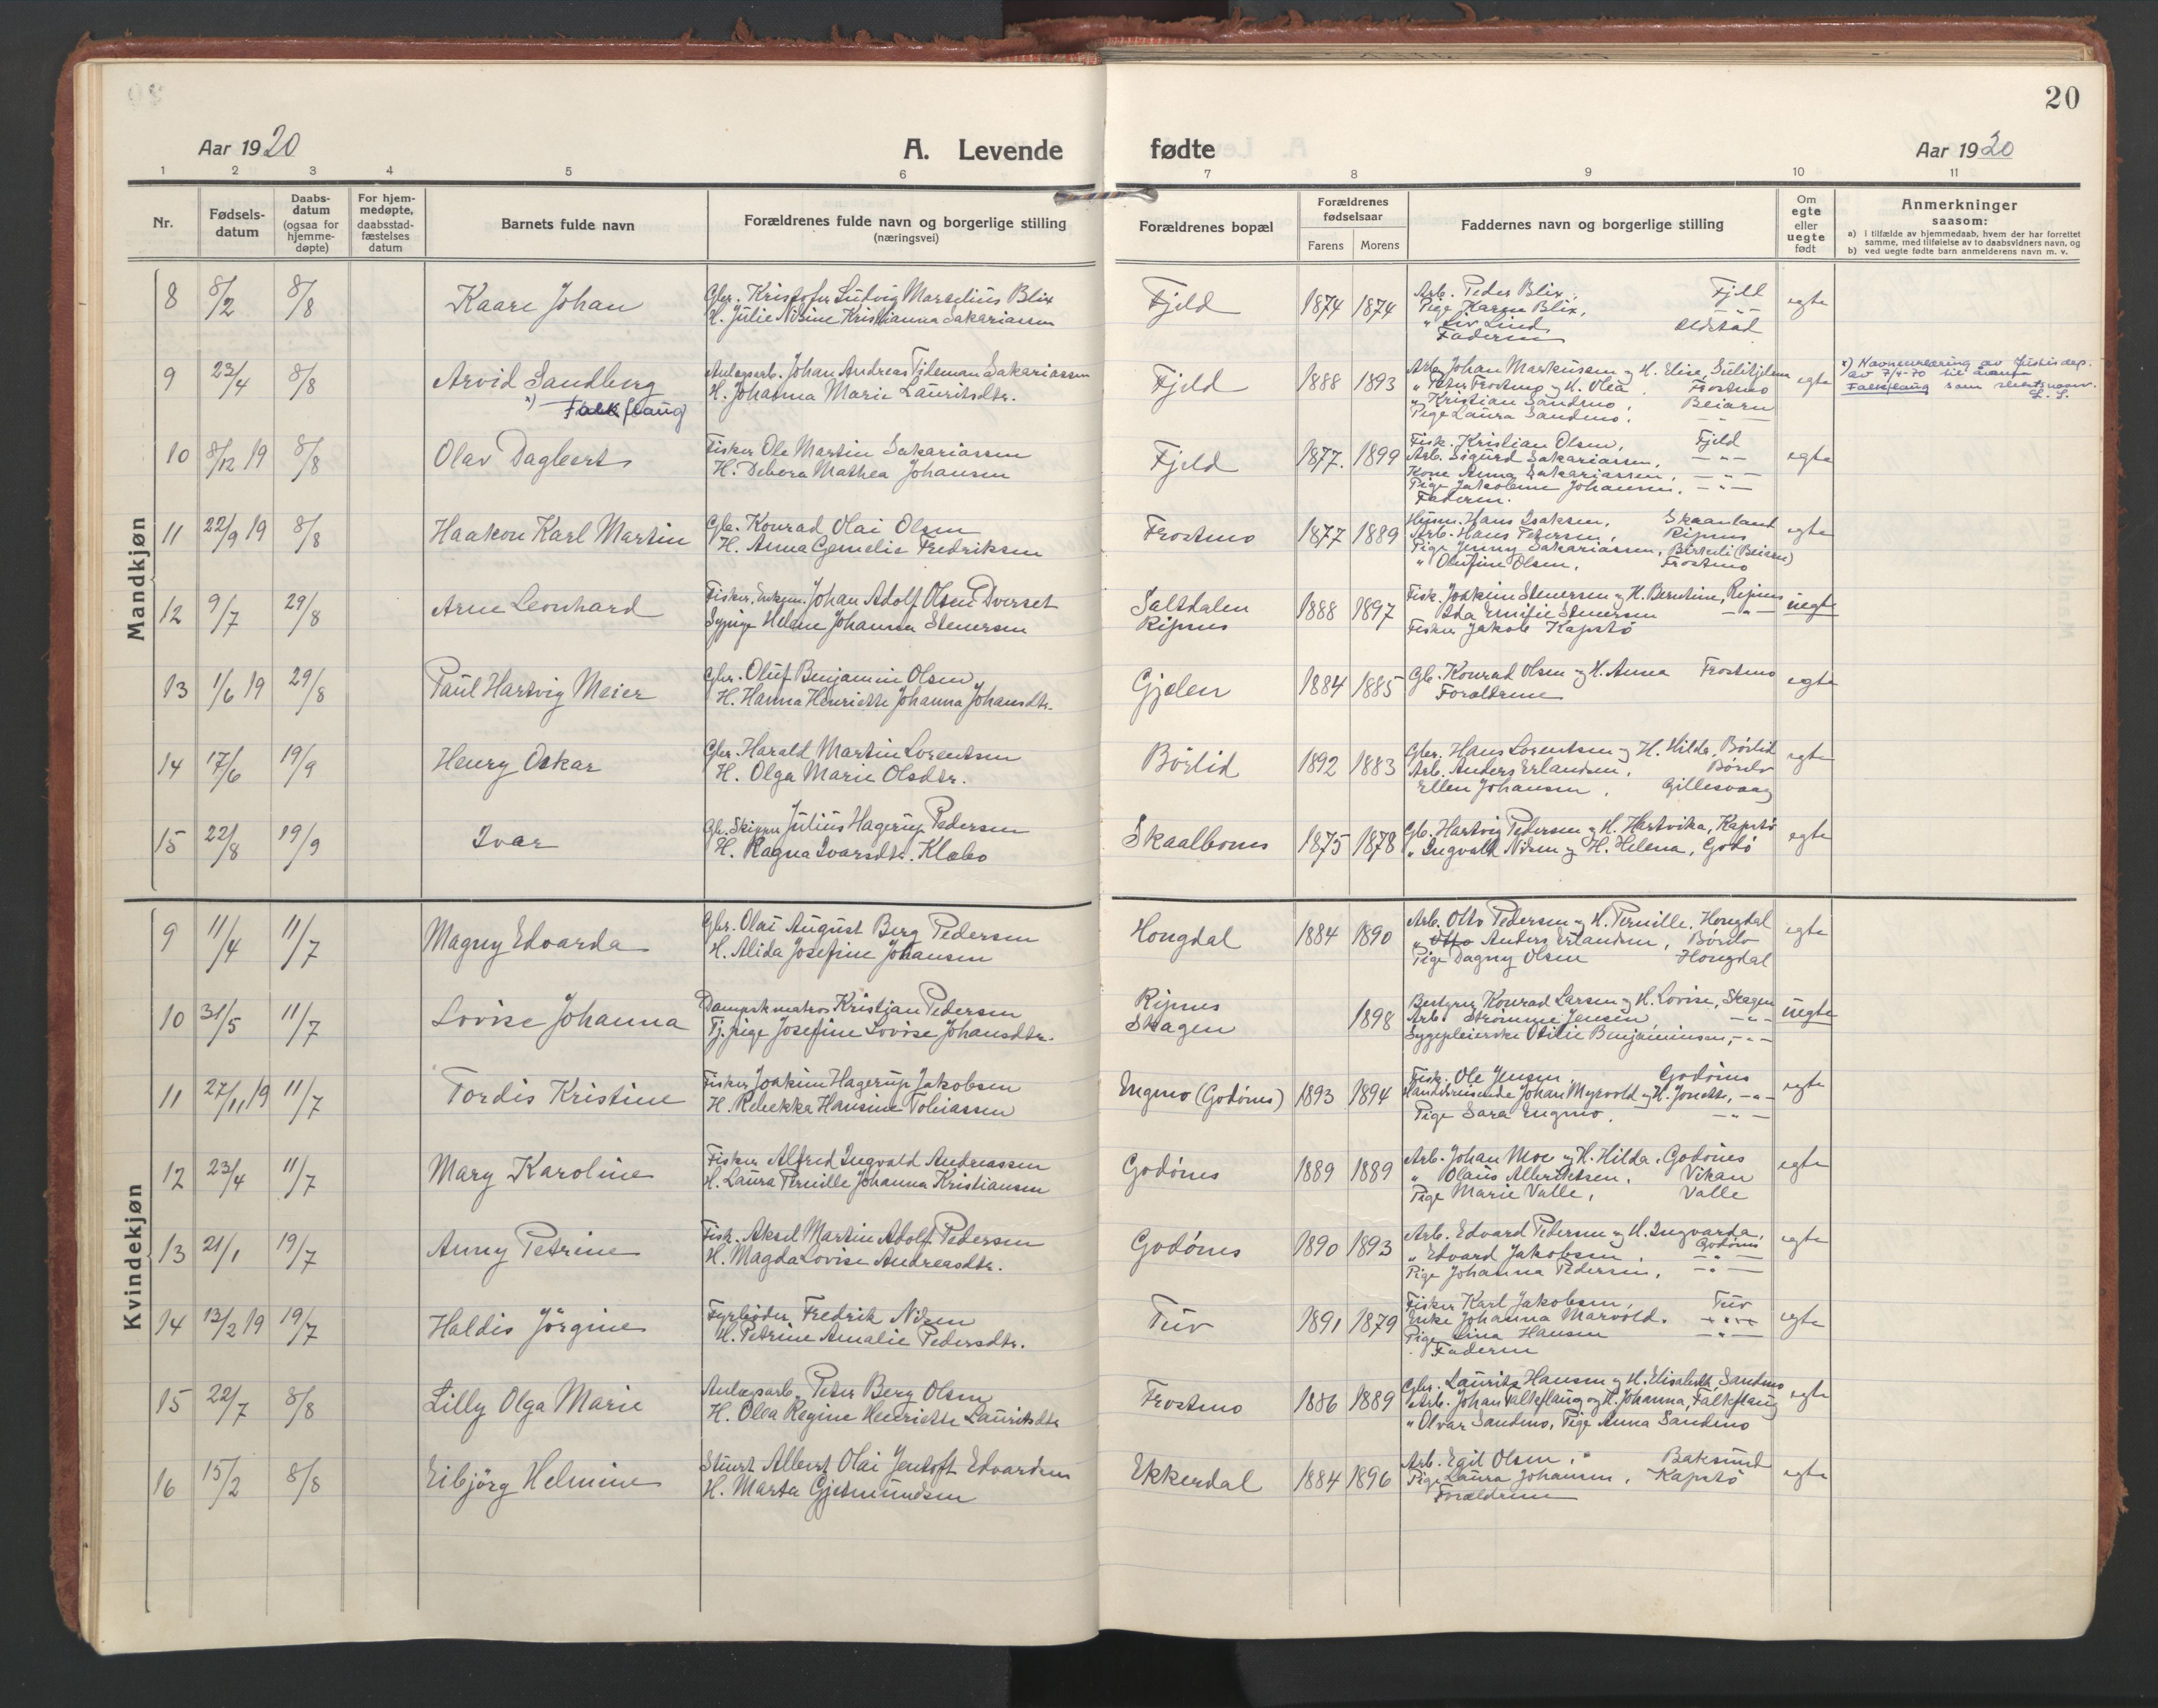 20
Aar 1920
A. Levende fødte
Aar 1920
1 2 3 4 5 6 7 8 9 10 11
Nr.
Fødsels-
datum
Daabs-
datum
(ogsaa for
hjemme-
døpte)
For hjem-
medøpte,
daabsstad-
fæstelses
datum
Barnets fulde navn
Forældrenes fulde navn og borgerlige stilling
(næringsvei)
Forældrenes bopæl
Forældrenes
fødselsaar
Farens Morens
Faddernes navn og borgerlige stilling
Om
egte
eller
uegte
født
Anmerkninger
saasom:
a) i tilfælde av hjemmedaab, hvem der har forrettet
samme, med tilføielse av to daabsvidners navn, og
b) ved uegte fødte barn anmelderens navn m. v.
Mandkjøn
8 8/2 8/8 Kaare Johan
Gbr. Kristofer Ludvig Marselius Blix
H. Julie Nisine Kristianna Sakariassen
Fjeld 1874 1874
Arb. Peder Blix, Fjell
Pige Karen Blix, — " —
" Liv Lind,
Faderen
egte
9 23/4 8/8 Arvid Sandberg
x) Falkflaug
Anlægsarb. Johan Andreas Tideman Sakariassen
H. Johanna Marie Lauritsdtr.
Fjeld 1888 1893
Arb. Johan Markussen og H. Elise, Sulitjelma
" Peter Frostmo og H. Olea, Frostmo
" Kristian Sandmo, Beiarn
Pige Laura Sandmo, — " —
egte
x) Navneendring av Justisdep.
av 7/4-70 til
Falkflaug som slektsnavn.
10 8/12 19 8/8 Olav Dagbert
Fisker Ole Martin Sakariassen
H. Debora Mathea Johansen
Fjeld 1877. 1899
Fisk. Kristian Olsen, Fjeld
Arb. Sigurd Sakariassen, — " —
Kone Anna Sakariassen, — " —
Pige Jakobine Johansen, — " —
Faderen.
egte
11 22/9 19 8/8 Haakon Karl Martin
Gbr. Konrad Olai Olsen
H. Anna Cornelie Fredriksen
Frostmo 1877 1889
Husm. Hans Isaksen, Skaanland
Arb. Hans Petersen, Ripnes
Pige Jenny Sakariassen, (Beiarn)
" Olufine Olsen, Frostmo
egte
12 9/7 29/8 Arne Leonhard
Fisker, Johan Adolf Olsen Dverset
Sypige Helene Johanna Stenersen
Saltdalen
Ripnes
1888 1897
Fisk. Joakim Stenersen og H. Berntine, Ripnes
Ida Emilie Stenersen — " —
Fisker Jakob Kapstö
uegte
13 1/6 19 29/8 Paul Hartvig Meier
Gbr. Oluf Benjamin Olsen
H. Hanna Henriette Johanna Johansdtr.
Gjelen 1884 1885
Gb. Konrad Olsen og H. Anna Frostmo
Forældrene
egte
14 17/6 19/9 Henry Oskar
Gbr. Harald Martin Lorentsen
H. Olga Marie Olsdtr.
Börlid 1892 1883
Gbr. Hans Lorentsen og H. Hilda, Börlid
Arb. Anders Erlandsen,
Ellen Johansen, Gillesvaag
egte
15 22/8 19/9 Ivar
Gb. Skipper Julius Hagerup Pedersen
H. Ragna Ivarsdtr. Klæbo
Skaalbones 1875 1878
Gb. Hartvig Pedersen og H. Hartvika, Kapstö
" Ingvald Nilsen og H. Helena, Godö
egte
Kvindekjøn
9 11/4 11/7 Magny Edvarda
Gbr. Olai August Berg Pedersen
H. Alida Josefine Johansen
Hongdal 1884 1890
Arb. Otto Pedersen og H. Pernille, Hongdal
" Otto Anders Erlandsen,
Pige Dagny Olsen Hongdal
egte
10 31/5 11/7 Lovise Johanna
Dampskmatros Kristjan Pedersen
Tj.pige Josefine Lovise Johansdtr.
Ripnes
Skagen
1898
Konrad Larsen og H. Lovise, Skagen
Arb. Strömme Jensen — " —
Sygepleierske Otilie Benjaminsen, — " —
uegte
11 27/11 19 11/7 Tordis Kristine
Fisker Joakim Hagerup Jakobsen
H. Rebekka Hansine Tobiassen
Engmo (Godönes) 1893 1894
Fisk. Ole Jensen, Godönes
Handelsreisende Johan Myrvold og H. Jonette, — " —
Pige Sara Engmo, — " —
egte
12 23/4 11/7 Mary Karoline
Fisker Alfred Ingvald Andreassen
H. Laura Pernille Johanna Kristiansen
Godönes 1889 1889
Arb. Johan Moe og H. Hilda, Godönes
" Olaus Albertsen, Vikan
Pige Marie Valle, Valle
egte
13 21/1 19/7 Anny Petrine
Fisk. Aksel Martin Adolf Pedersen
H. Magda Lovise Andreasdtr.
Godönes 1890 1893
Arb. Edvard Pedersen og H. Ingvarda,
Godönes
" Edvard Jakobsen, — " —
Pige Johanna Pedersen, — " —
egte
14 13/2 19 19/7 Haldis Jörgine
Fyrböder Fredrik Nilsen
H. Petrine Amalie Pedersdtr.
Tuv 1891 1879
Fisker Karl Jakobsen, Tuv
Enke Johanna Marvold. — " —
Pige Lina Hansen — " —
Faderen
egte
15 22/7 8/8 Lilly Olga Marie
Anlægsarb. Peter Berg Olsen
H. Olea Regine Henriette Lauritsdtr
Frostmo 1886 1889
Gbr. Laurits Hansen og H. Elisabeth, Sandmo
Arb. Johan Falkflaug og H. Johanna, Falkflaug
" Olvar Sandmo, Pige Anna Sandmo
egte
16 15/2 8/8 Eibjörg Helmine
Stuert Albert Olai Jentoft Edvardsen
H. Marta Gjetmundsen
Ekkerdal 1884 1896
Arb. Egil Olsen, Baksund
Pige Laura Johansen, Kapstö
Forældrene
egte